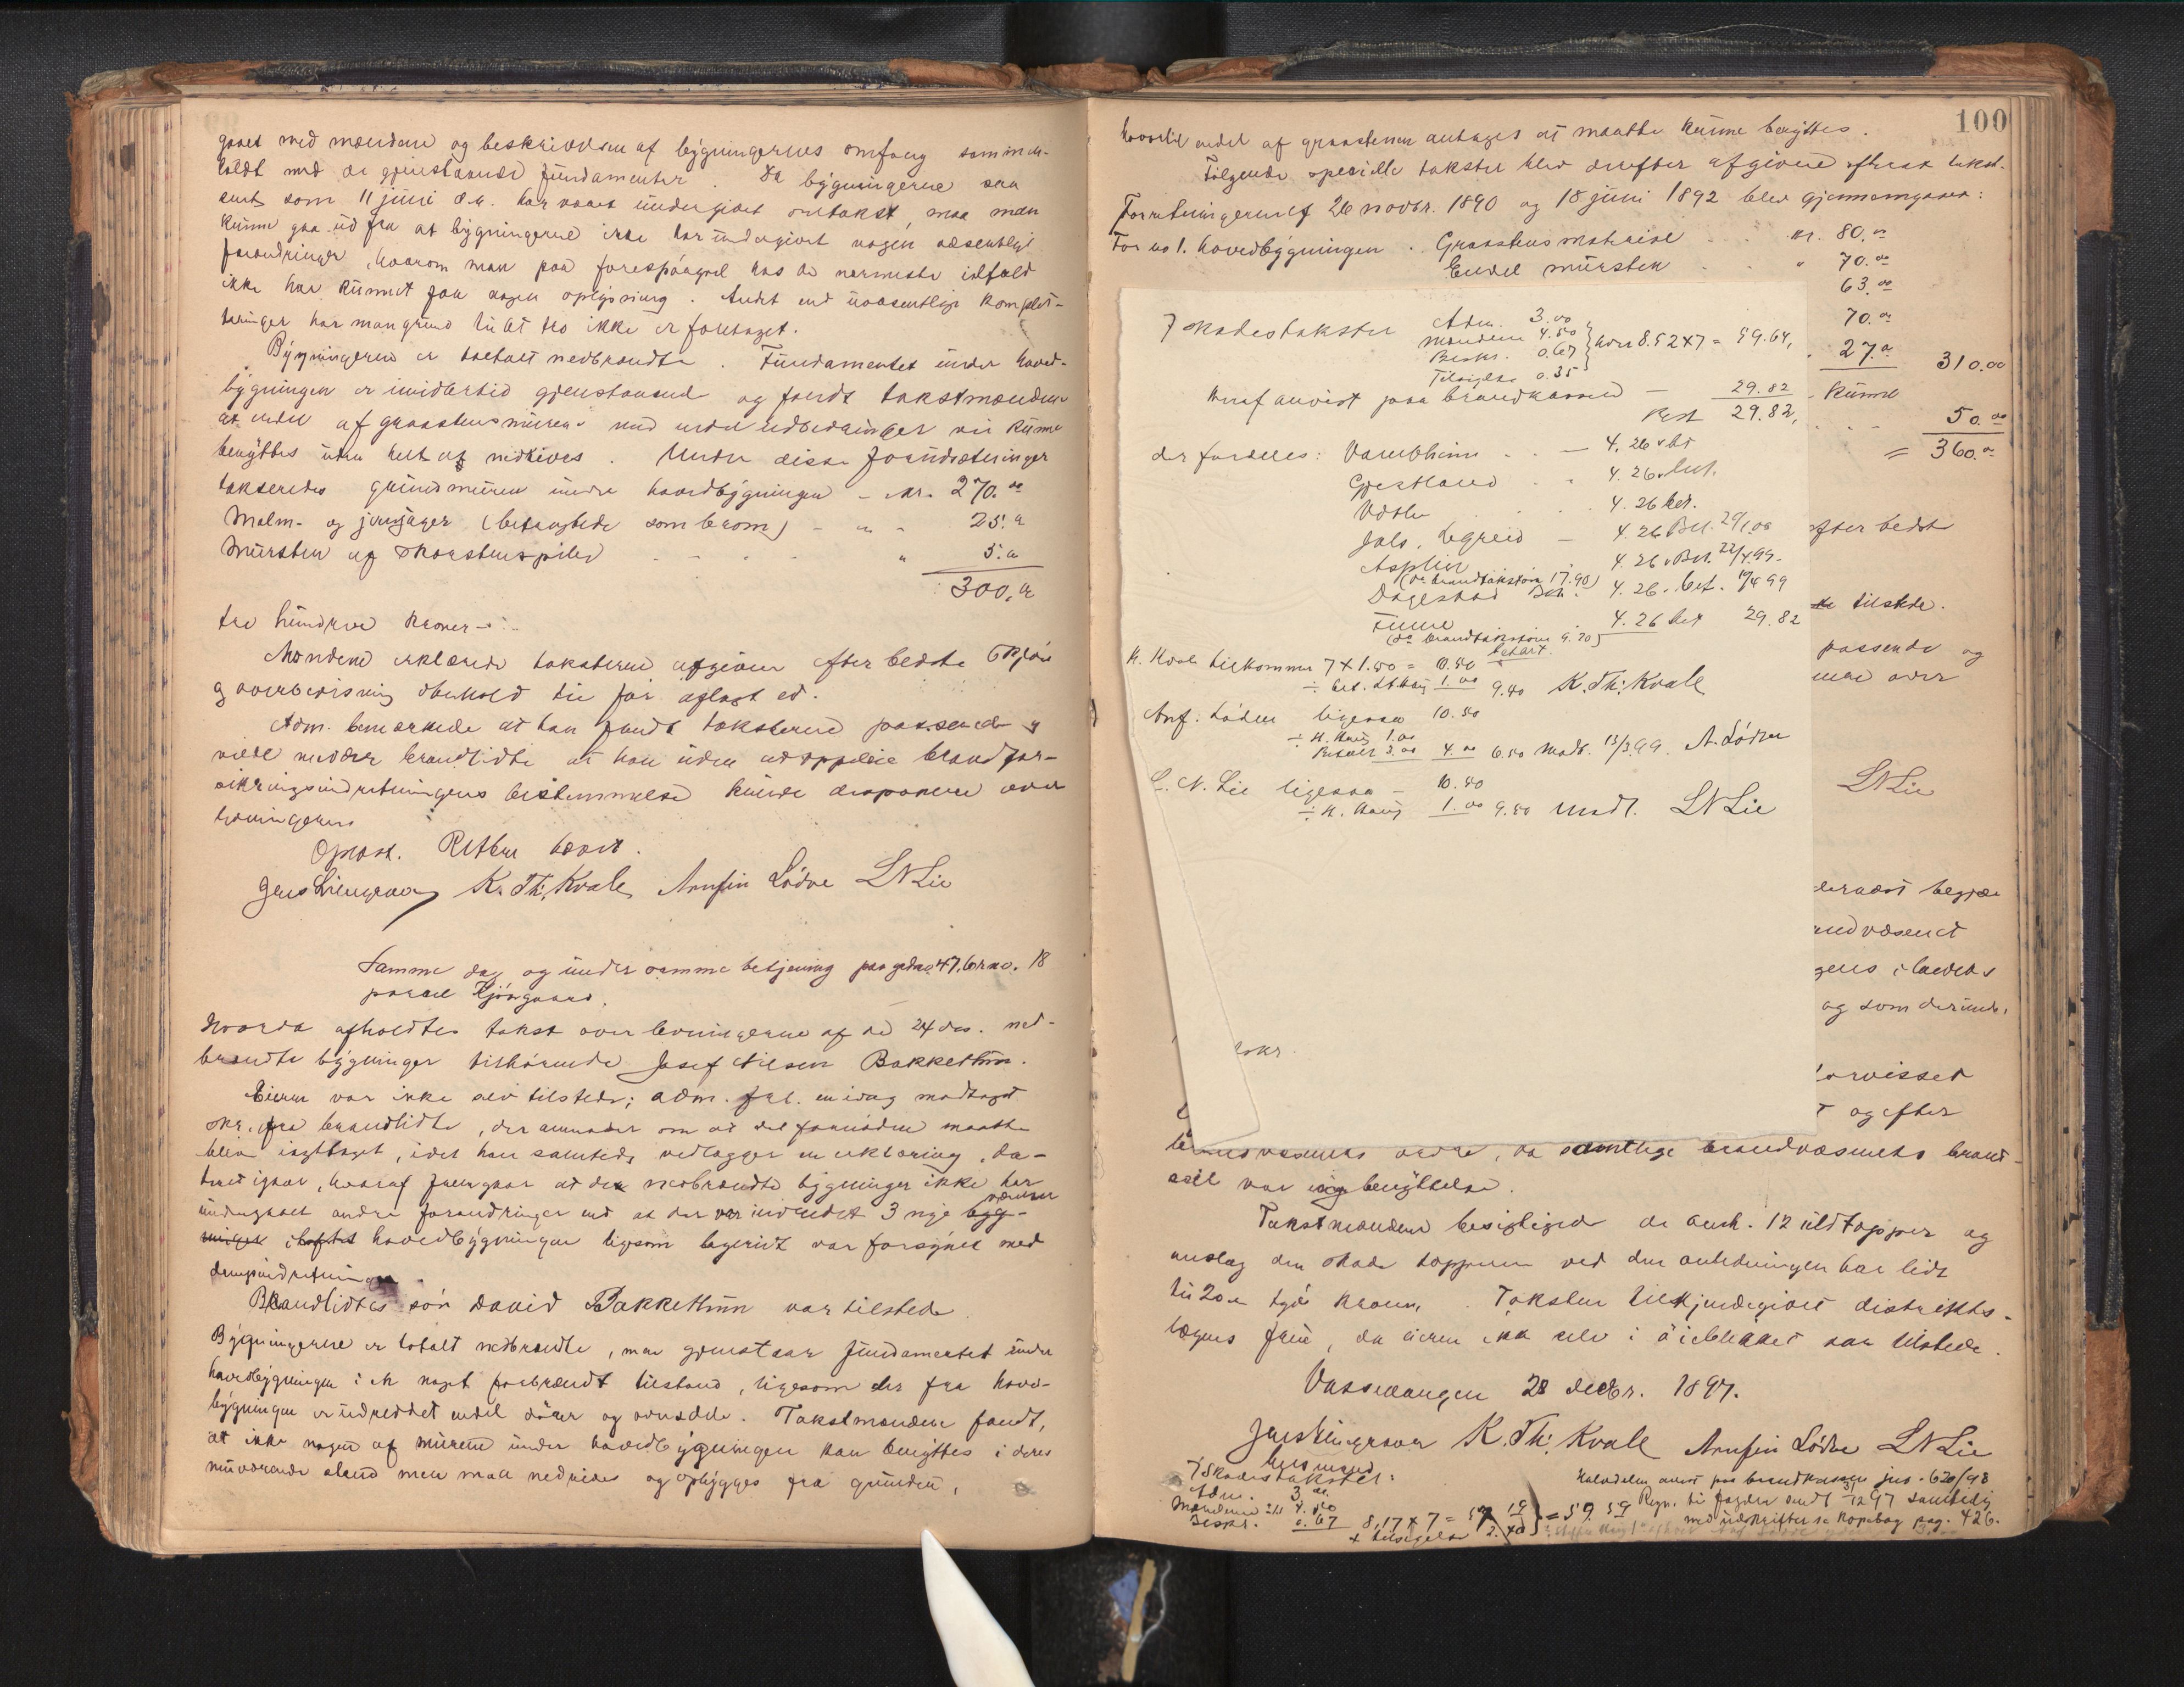 gaaet med mændene og beskrivelsen af bygningernes omfang sammen-
holdt med de gjenstaaende fundamenter. Da bygningerne saa
sent som 11 juni d.a. har været undergivet omtakst, maa man
kunne gaa ud fra at bygningerne ikke har undergivet nogen væsentlige
forandringer, hvorom man paa forespørgsel hos de nærmeste
ikke har kunnet faa nogen oplysning. Andet end uvæsentlige komplet-
teringer har man grund til at tro ikke er foretaget.
Bygningerne er totalt nedbrændte. Fundamentet under hoved-
bygningen er imidlertid gjenstaaende og fandt takstmændene
at endel af graastensmuren med endel udbedringer vil kunne
benyttes uden helt at nedrives. Under disse forudsætninger
takseredes grundmuren under hovedbygningen - kr. 270.00
Malm- og jernsager (betragtede som brom) - " - 25.00
Mursten af skorstenspiber - " 5.00
300.00
tre hundrede kroner -
Mændene erklærede taksterne afgivne efter bedste skjøn
og overbevisning i henhold til før aflagt ed.
Adm. bemærkede at han fandt taksterne passende og
vilde meddele brandlidte at han uden at oppebie brandfor-
sikringsindretningens bestemmelse kunde disponere over
levningerne
Oplæst. Retten hævet.
Jens Lilengraven K. Th. Kvale Arnfin Lødve LNLie
Samme dag og under samme betjening paa gdno. 47, brno. 18
parcel Kjønegaard.
Hvorda afholdtes takst over levningerne af de 24 ds. ned-
brændte bygninger tilhørende Josef Nilsen Bakkethun.
Eieren var ikke selv tilstede; adm. frl. en idag modtaget
skr. fra brandlidte, der anmoder om at det fornødne maatte
blive iagttaget, idet han samtidig vedlægger en erklæring, da-
teret igaar, hvoraf fremgaar at de nedbrændte bygninger ikke har
undergaaet andre forandringer end at der var indredet 3 nye værelser
i hovedbygningen ligesom bageriet var forsynet med
dampindretning
Brandlidtes søn David Bakkethun var tilstede
Bygningerne er totalt nedbrændte, man gjenstaar fundamentet under
hovedbygningen i en noget forbrændt tilstand, ligesom der fra hoved-
bygningen er udreddet endel dører og ovnsdele. Takstmændene fandt,
at ikke nogen af murene under hovedbygningen kan benyttes i deres
nuværende stand men maa nedrives og opbygges fra grunden,
100
hvortil endel af graastenen antages at maatte kunne benyttes.
Følgende specielle takster blev derefter afgivne efterat takst-
forretningerne af 26 novbr. 1890 og 18 juni 1892 blev gjennemgaaet:
For no 1. hovedbygningen. Graastensmateriel kr. 80.00
Endel mursten " 70.00
63.00
70.00
27.00 310.00
kunne
50.00
= 360.00
7 skadestakster Adm. 3.00
Mændene 4.50
Beskr. 0.67
Tilsigelse 0.35
hver 8.52 x 7 = 59.64,
heraf anvist paa brandkassen - 29.82
Rest 29.82,
der fordeles: Vambheim - 4.26 bet
Gjestland 4.26 bet.
Vdtle 4.26 bet.
4.26 Bet.
Asplin 4.26 Bet. 22/4 99.
(da brandtakstn 17.90)
Dagestad 4.26. bet. 19/4 99
Finne 4.26 bet 29.82
(da brandtakstn 9.20)
betalt.
K. Kvale tilkommer 7 x 1.50 = 10.50
1.00 9.50 K. Th. Kvale
Arnf. Lødve ligesaa 10.50
÷ H. Haug 1.00
3.00 4.00 6.50 modt. 13/3 99. A. Lødve
L. N. Lie ligesaa - 10.50
÷ H. Haug 1.00 9.50 modt. LNLie
efter bedste
tilstede.
passende og
over
LNLie
dernæst begjæ
andvæsenet
og som derunder
forvisset
og efter
skr.
brandvæsenets ordre, da samtlige brandvæsenets brand-
seil var i benyttelse.
Takstmændene besigtigede de anm. 12 uldtæpper og
anslog den skade tæpperne ved den anledningen har lidt
til 20.00 tyve kroner. Taksten tilkjendegivet distrikts-
lægens frue, da eieren ikke selv i øieblikket var tilstede.
Vossevangen 28 decbr. 1897.
Jens Lilengraven K. Th. Kvale Arnfin Lødve LNLie
lensmand
7 Skadestakster:
Adm. 3.00
Mændene 4.50
Beskr. 0.67 8,17 x 7 = 57.19
+ tilsigelse 2.40 } = 59.59
Halvdelen anvist paa brandkassen jns. 620/98
Regn. til fogden sendt 31/12 97 samtidig
med udskrifter se kopibog pag. 426.